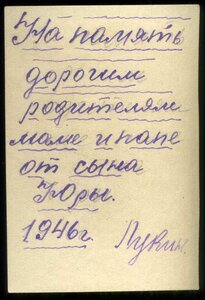 На память
дорогим
родителям
маме и папе
от сына
Юры.
1946г. Лукин.